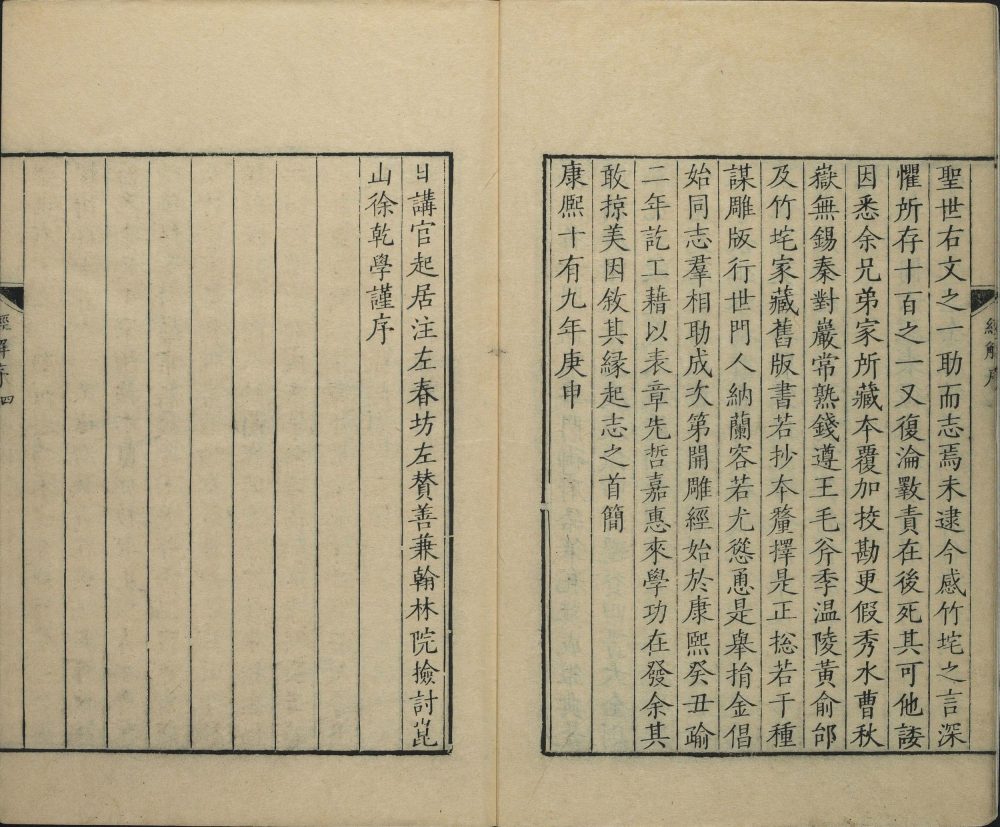 聖世右文之一助而志焉未逮今感竹垞之言深
懼所存十百之一又復淪斁責在後死其可他諉
因悉余兄弟家所藏本覆加挍勘更假秀水曹秋
嶽無錫秦對巖常熟錢遵王毛斧季温陵黃俞邰
及竹垞家藏舊版書若抄本釐擇是正捴若干種
謀雕版行世門人納蘭容若尤慫恿是舉捐金倡
始同志羣相助成次第開雕經始於康熙癸丑踰
二年訖工藉以表章先哲嘉惠來學功在發余其
敢掠美因敘其緣起志之首簡
康熙十有九年庚申
經解序
日講官起居注左春坊左贊善兼翰林院撿討崑
山徐乾學謹序
經解序 四